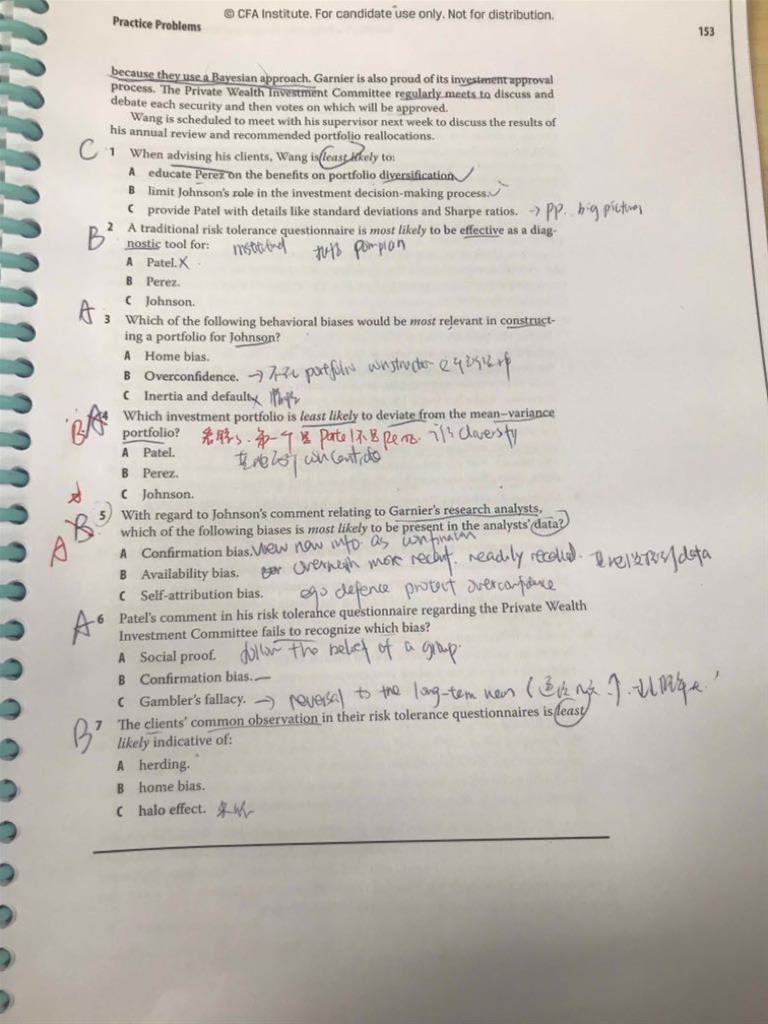 © CFA Institute. For candidate use only. Not for distribution.
Practice Problems
153
because they use a Bayesian approach. Garnier is also proud of its investment approval
process. The Private Wealth Investment Committee regularly meets to discuss and
debate each security and then votes on which will be approved.
Wang is scheduled to meet with his supervisor next week to discuss the results of
his annual review and recommended portfolio reallocations.
C 1 When advising his clients, Wang is least likely to:
A educate Perez on the benefits on portfolio diversification.
B limit Johnson's role in the investment decision-making process.
C provide Patel with details like standard deviations and Sharpe ratios. → PP. big picture
B 2 A traditional risk tolerance questionnaire is most likely to be effective as a diag-
nostic tool for: pompian
A Patel. X
B Perez.
C Johnson.
A 3 Which of the following behavioral biases would be most relevant in construct-
ing a portfolio for Johnson?
A Home bias.
B Overconfidence. → portfolio
C Inertia and default. x
B A 4 Which investment portfolio is least likely to deviate from the mean–variance
portfolio?
A Patel.
B Perez.
C Johnson.
A B 5 With regard to Johnson's comment relating to Garnier's research analysts,
which of the following biases is most likely to be present in the analysts' data?
A Confirmation bias. view new info as confirmation
B Availability bias. more recent. readily recalled. data
C Self-attribution bias. ego defence protect overconfidence
A 6 Patel's comment in his risk tolerance questionnaire regarding the Private Wealth
Investment Committee fails to recognize which bias?
A Social proof. follow the belief of a group.
B Confirmation bias.
C Gambler's fallacy. → reversal to the long-term mean
B 7 The clients' common observation in their risk tolerance questionnaires is least
likely indicative of:
A herding.
B home bias.
C halo effect.